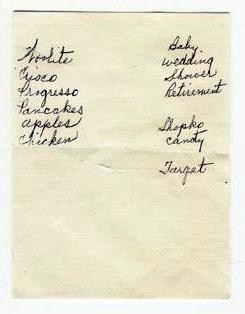 Woolite
Cisco
Progresso
Pancakes
apples
Chicken
Baby
Wedding
Shower
Retirement
Shopko
candy
Target